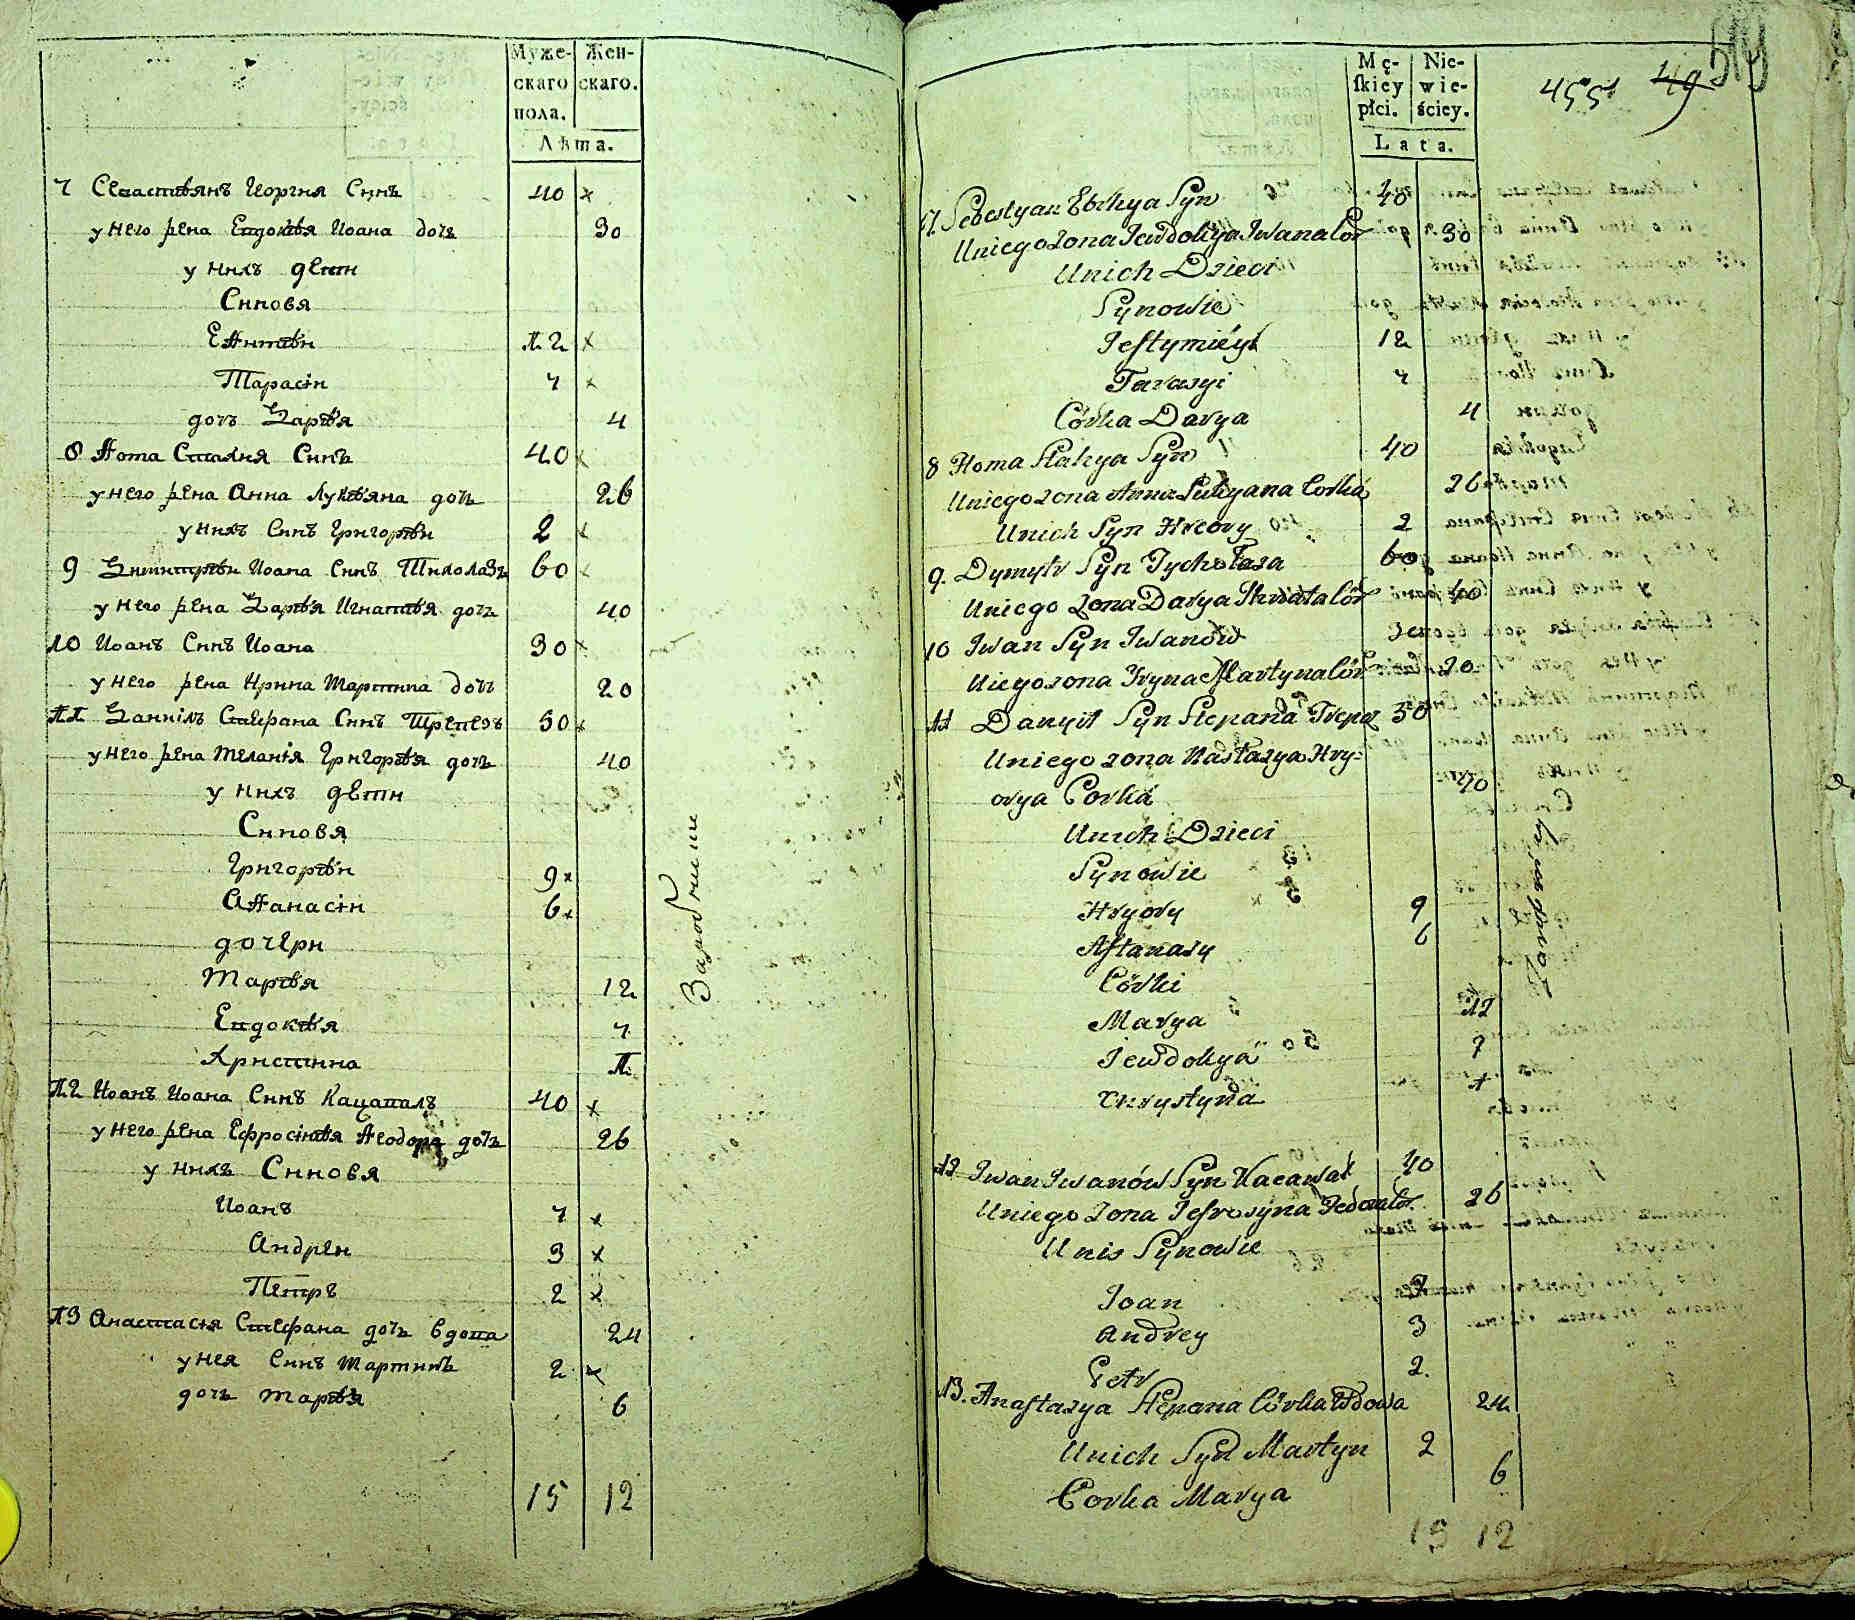 Муже-
скаго
пола.
Жен-
скаго.
Лѣта.
7 Севастѣянъ Иоргия Синъ 40 x
у него жена Евдокѣя Иоана дочь 30
у нихъ дети
Синовя
Ефитѣи 12 x
Тарасіи 7 x
дочь Дарѣя 4
8 Фома Стахия Синъ 40 x
у него жена Анна Лукѣяна дочь 26
у нихъ Синъ Григорѣи 2 x
9 Димитрѣи Иоана Синъ 60 x
у него жена Дарѣя Игнатѣя дочь 40
10 Иоанъ Синъ Иоана 30 x
у него жена Ирина Мартина дочь 20
11 Даниілъ Стефана Синъ Трепезъ 50 x
у него жена Меланія Григорѣя дочь 40
у нихъ дети
Синовя
Григорѣи 9 x
Афанасіи 6 x
дочери
Марѣя 12
Евдокѣя 7
Христина 1
12 Иоанъ Иоана Синъ Кацавалъ 40 x
у него жена Ефросінѣя Феодора дочь 26
у нихъ Синовя
Иоанъ 7 x
Андреи 3 x
Петръ 2 x
13 Анастасія Стефана дочь вдова 24
у нея Синъ Мартинъ 2 x
дочь Марѣя 6
15 12
Mę-
ſkiey
płci.
Nie-
wie-
ściey.
Lata.
455 49
7. Sebestyan Syn 40
Uniego żona Jewdokya Iwana Cór 30
Unich Dzieci
Synowie
Jeftymiey 12
Tarasyi 7
Córka Darya 4
8 Homa Stahya Syn 40
Uniego zona Anna Lukyana Corka 26
Unich Syn Hreory 2
9. Dymytr Syn Tychołaza 60
Uniego Zona Darya Cór 40
10 Iwan Syn Iwanów 30
Uiego zona Iryna Martyna Cór 20
11 Danyił Syn Stepana Trepez 50
Uniego zona Nastazya Hry-
orya Corka 40
Unich Dzieci
Synowie
Hryory 9
Aftanazy 6
Córki
Marya 12
Jewdokya 7
Chrystyna 1
12 Iwan Iwanów Syn Kacawał 40
Uniego Zona Jefrosyna Fedora Cór 26
Unis Synowie
Joan 7
Andrey 3
Petr 2.
13. Anaſtazya Stepana Córka Wdowa 24
Unich Syn Martyn 2
Corka Marya 6
15 12